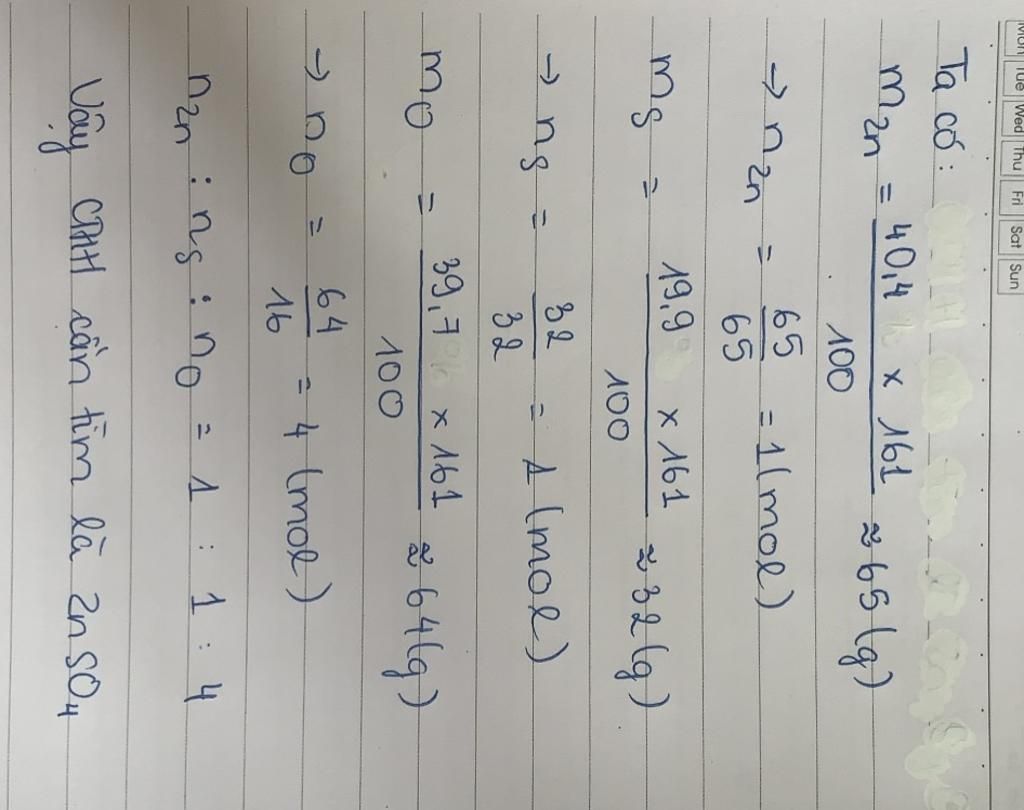 Mon Tue Wed Thu Fri Sat Sun
Ta có:
mZn = 40,4 x 161 / 100 ≈ 65 (g)
→ nZn = 65 / 65 = 1 (mol)
mS = 19,9 x 161 / 100 ≈ 32 (g)
→ nS = 32 / 32 = 1 (mol)
mO = 39,7 x 161 / 100 ≈ 64 (g)
→ nO = 64 / 16 = 4 (mol)
nZn : nS : nO = 1 : 1 : 4
Vậy CTHH cần tìm là ZnSO4